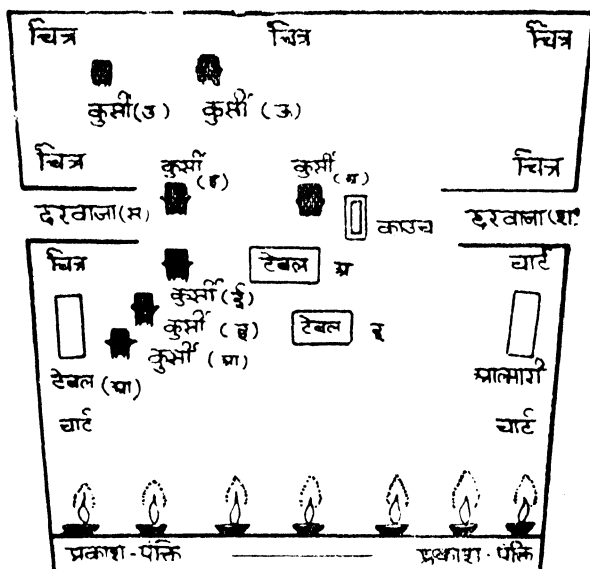 चित्र चित्र चित्र
कुर्सी (उ) कुर्सी (ऊ)
चित्र कुर्सी कुर्सी चित्र
(अ)
दरवाजा (अ) काउच दरवाजा
चित्र टेबल अ चार्ट
कुर्सी (ई)
कुर्सी (इ) टेबल इ
कुर्सी (आ)
टेबल (आ) आल्मारी
चार्ट चार्ट
प्रकाश-पंक्ति प्रकाश-पंक्ति